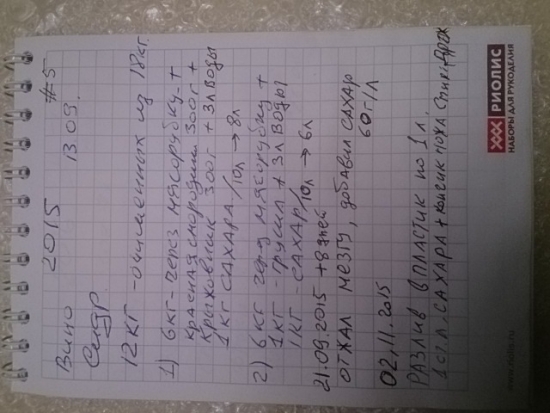 Вино 2015 #5
Сидр 13.09.
12 кг - очищенных из 18 кг.
1) 6 кг - через мясорубку +
красная смородина 300 г +
крыжовник 300 г + 3 л воды
1 кг сахара /10л → 8л
2) 6 кг через мясорубку +
1 кг - груш + 3 л воды
1 кг - сахар /10л → 6л
21.09.2015 +8 дней
отжал мезгу, добавил сахар
60 г/л
02.11.2015
Разлив в пластик по 1 л.
1 ст. л. сахара +
РИОЛИС
НАБОРЫ ДЛЯ РУКОДЕЛИЯ